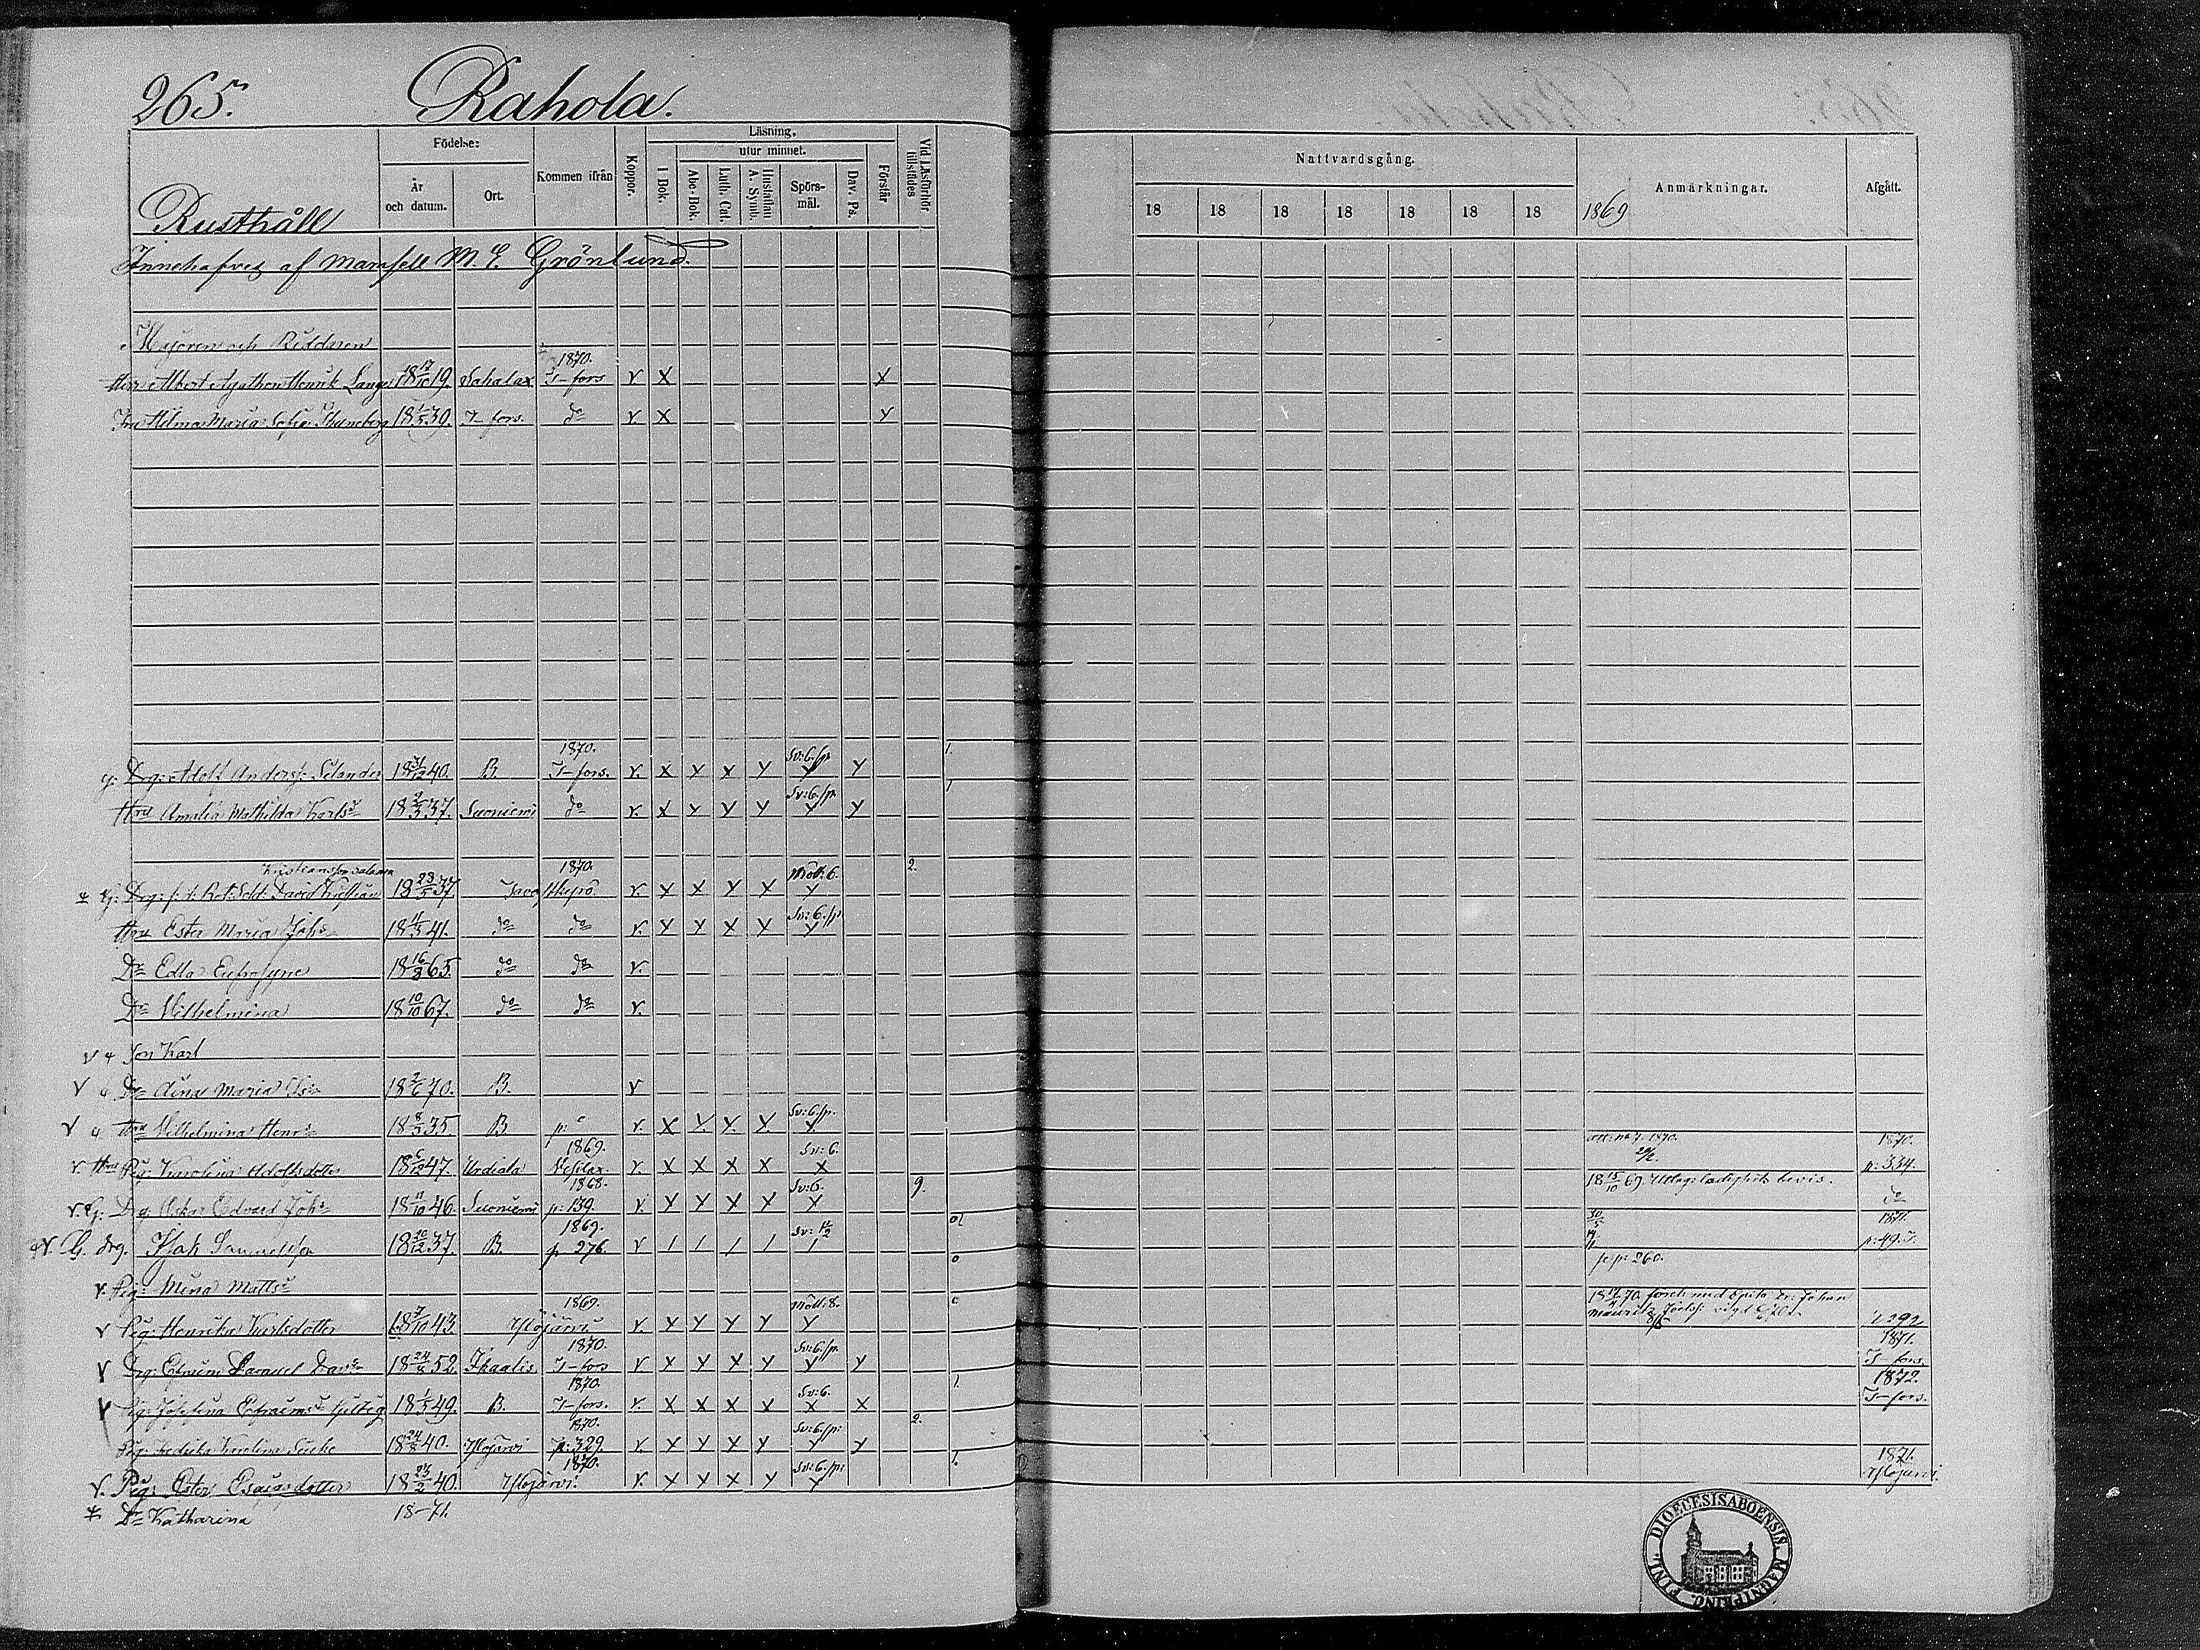 265. Rahola.
Födelse: Kommen ifrån Koppor. Läsning. Förstår Vid Läsförhör tillstädes
År och datum. Ort. I Bok. utur minnet. Abc-Bok. Luth. Cat. Hustaflan A. Symb. Spörsmål. Dav. Ps.
Nattvardsgång. Anmärkningar. Afgått.
18 18 18 18 18 18 18 1869
Rusthåll
Innehafves af Mamsell M. E. Grönlund.
Majoren och Riddaren
1870.
Herr Albert Agathon Henrik Lang 18 17/10 19. Sahalax T-fors v x x
Fru Hilma Maria Sofia Thuneberg 18 39. T-fors. do v. x y
1870. Sv: 6. sp. 1.
Drg: Adolf Anders: Selander 18 31/12 40. B. T-fors. v. x y x y y y
Sv: 6. sp. 1
Hru Amalia Mathilda Karls 18 37. Suoniemi do v. x y y y y y
Kristiansson Salamon 1870. Möll: 6. 2.
Drg: f: d: Res: Sold: David Kristian 18 23/5 37. Tavastkyro v. x x y x y
Sv: 6. sp
Hru Ester Maria Joh: 18 41. do do v. x y x x y
Dr Edla Eufrosyne 18 16/2 65. do do v.
Dr Vilhelmina 18 10/10 67. do do v.
v Son Karl
v Dr Aina Maria 18 2/6 70. B. v
Sv: 6. sp.
v Hru Vilhelmina Henr: 18 8/3 35. B. p: v. x y. y. x. y.
1869. Sv: 6. 1870. 1870.
v. Hru Pig: Karolina Adolfsdotter 18 6/12 47. Urdiala v. x x x x x p: 334.
1868. Sv: 6. 9. 18 15/10 69 Uttag: ledighets bevis.
v. G: Drg: Oskar Edvard Joh: 18 11/10 46. Suoniemi p: 139. v. x y x x x do
1869. Sv: 1 1/2 30/5 1871.
v. G. drg. Isak Samuelsson 18 30/12 37. B. p 276. v / / / / / p: 49. T.
se p: 260.
v. Pig: Mina Matts:
1869. Möll: 8. 18 70 Johan
v Pig: Henrika Karlsdotter 18 7/10 43. Ylöjärvi v. x y y y y Maurits vigd 292
1870. Sv: 6. sp. 1871.
v Drg: Efraim Samuel Dav: 18 24/8 52. Ikaalis. T-fors v y y x y y y T-fors
1870. Sv: 6. 1. 1872.
v Pig: Josefina Efraims: 18 1/3 49. B. T-fors. v. x x x x x x T-fors.
1870. Sv: 6. sp: 2.
Pig: Fredrika Karolina 18 24/8 40. Ylöjärvi p: 329. v. x y x y y y
1870. Sv: 6. sp: 1. 1871.
v. Pig: Ester Esaiasdotter 18 23/2 40. Ylöjärvi. v. y y x y y Ylöjärvi
Dr Katharina 18-71.
FINL. DIOECESIS ABOENSIS. MAGNI PRINC.